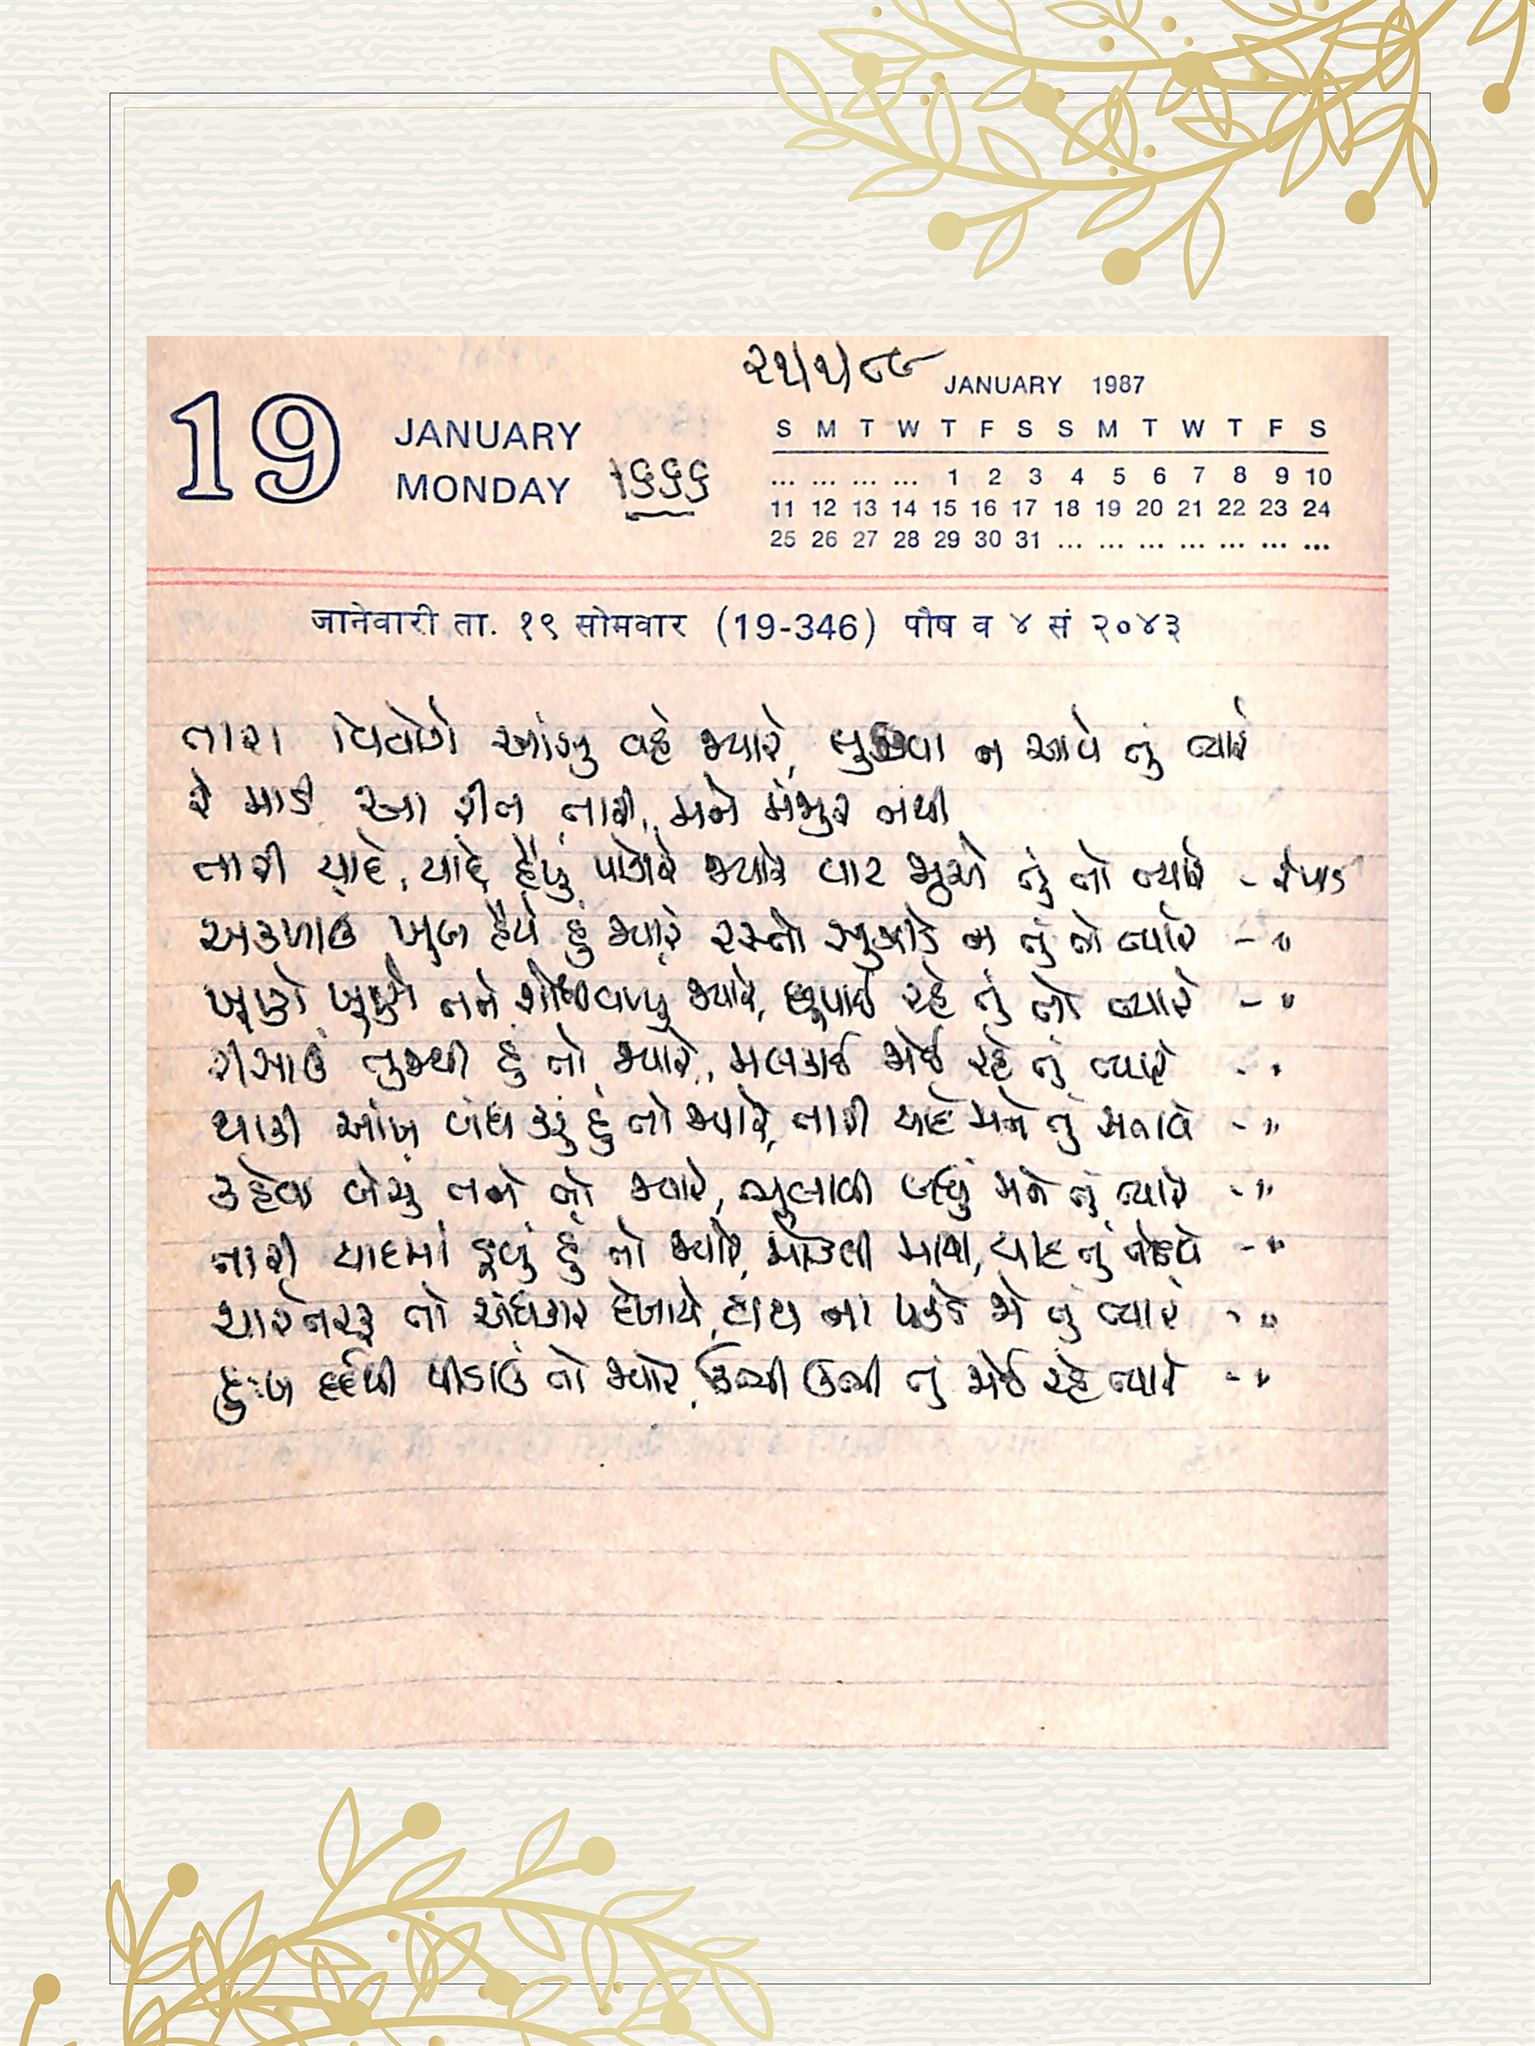 ૨૧/૧/૮૯
JANUARY 1987
19
JANUARY
MONDAY
૧૬૬૬
S M T W T F S S M T W T F S
... ... ... ... 1 2 3 4 5 6 7 8 9 10
11 12 13 14 15 16 17 18 19 20 21 22 23 24
25 26 27 28 29 30 31 ... ... ... ... ... ... ...
जानेवारी ता. १९ सोमवार (19-346) पौष व ४ सं २०४३
તારા વિયોગે આંસુ વહે જ્યારે, લુછવા ન આવે તું ત્યારે
રે માડી આ રીત તારી, મને મંજુર નથી
તારી યાદે, યાદે હૈયું પોકારે જ્યારે વાટ જુએ તું તો ત્યારે - રે માડી
અકળાઉં ખૂબ હૈયે હું જ્યારે રસ્તો સુઝાડે ન તું તો ત્યારે - "
ખૂણે ખૂણે તને શોધવા જ્યારે, છૂપાઈ રહે તું તો ત્યારે - "
રીસાઉં તુજથી હું તો જ્યારે, મલકાઈ જોઈ રહે તું ત્યારે - "
થાકી આંખ બંધ કરું હું તો જ્યારે, તારી યાદે મને તું સતાવે - "
કહેવા બેસું તને તો જ્યારે, ભુલાવી બધું મને તું ત્યારે - "
તારી યાદમાં ડૂબું હું તો જ્યારે, મોકલી માયા, યાદ તું તોડાવે - "
ચારેતરફ તો અંધકાર દેખાયે, હાથ ના પકડે જો તું ત્યારે - "
દુઃખ દર્દથી પીડાઉં તો જ્યારે, ઊભી ઊભી તું જોઈ રહે ત્યારે - "